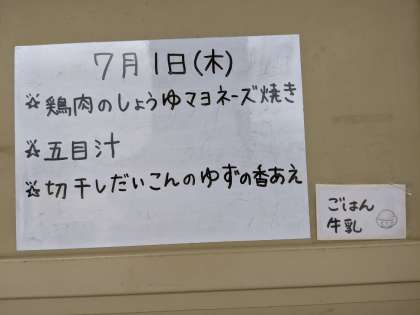 7月1日(木)
☆鶏肉のしょうゆマヨネーズ焼き
☆五目汁
☆切干しだいこんのゆずの香あえ
ごはん
牛乳